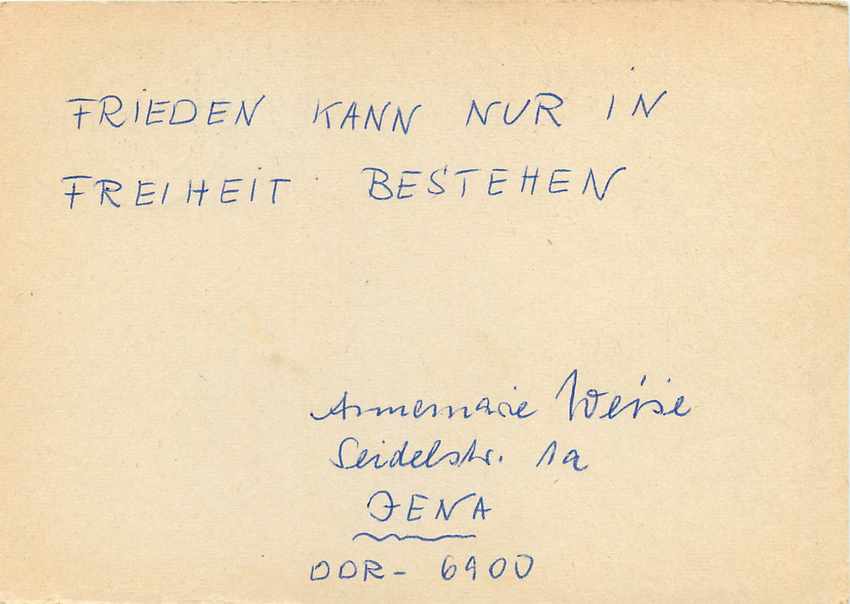 FRIEDEN KANN NUR IN
FREIHEIT BESTEHEN
Annemarie Weise
Seidelstr. 1a
JENA
DDR - 6900